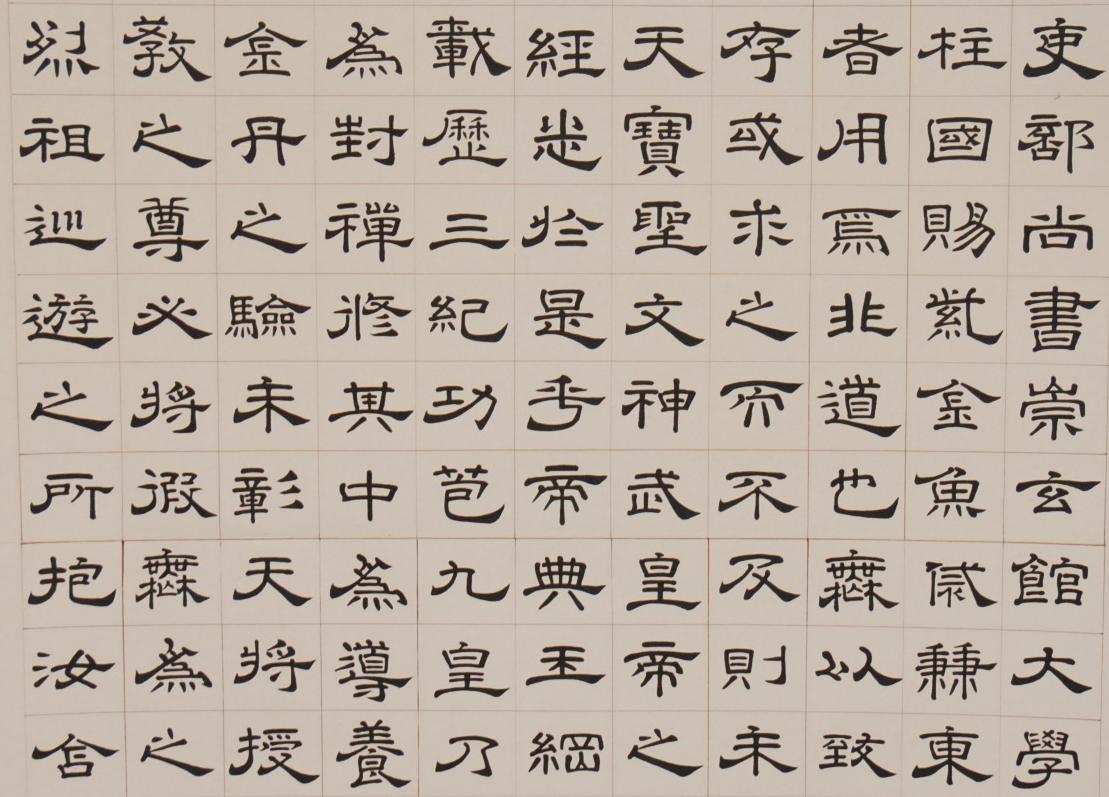 吏部尚書崇玄館大學
柱國賜紫金魚袋兼東
者用焉非道也無以致
存或求之而不及則未
天寶聖文神武皇帝之
經於是乎帝典王綱
載歷三紀功苞九皇乃
為封禪修其中為導養
金丹之驗未彰天將授
教之尊必將假無為之
烈祖巡遊之所抱汝含